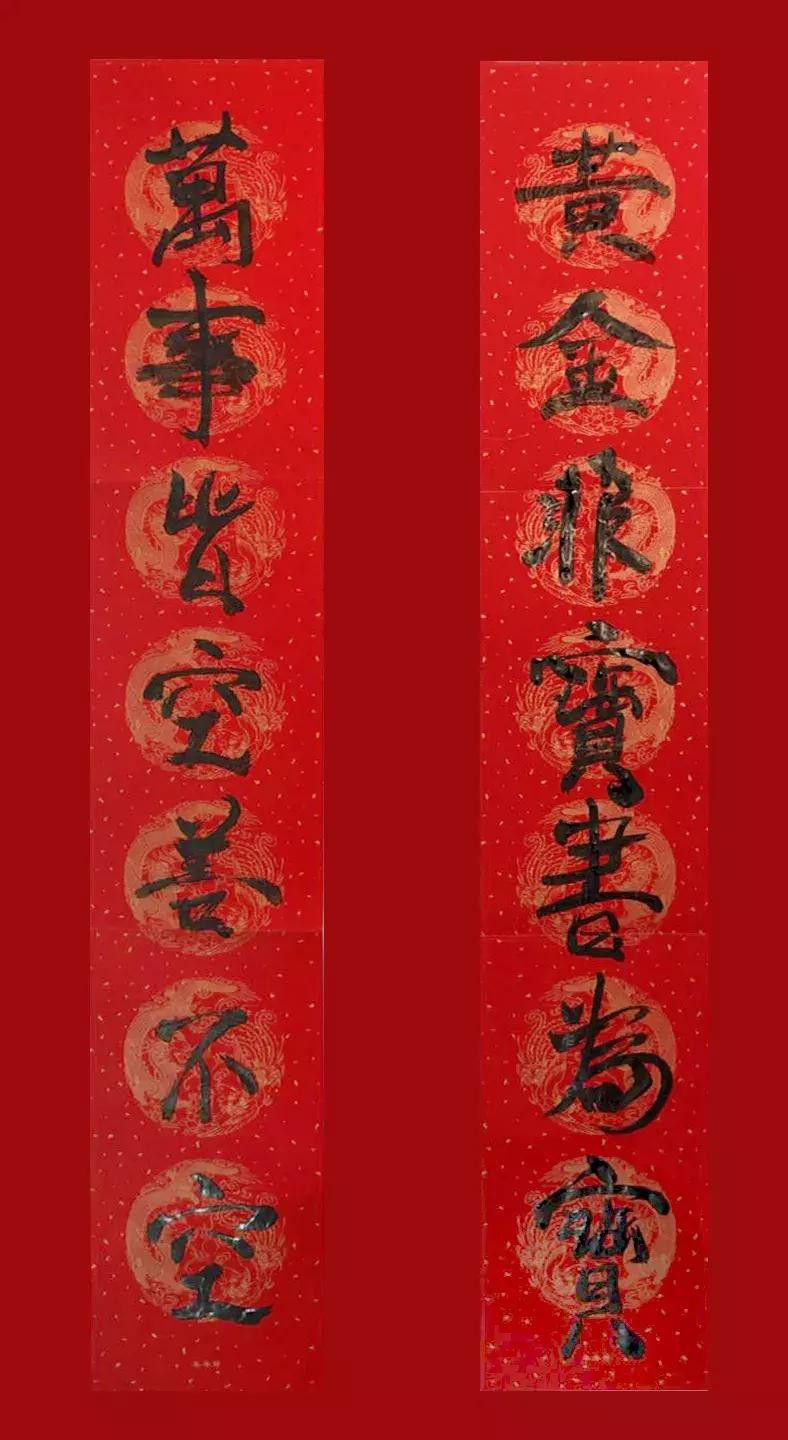 黃金非寶書為寶
萬事皆空善不空